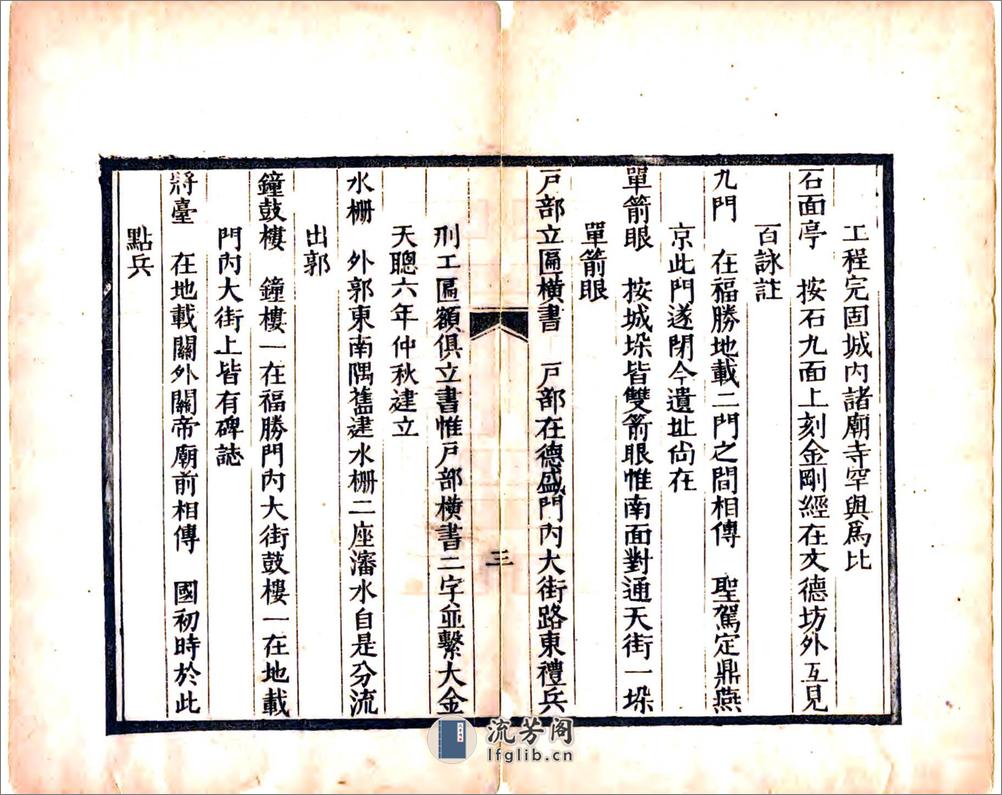 工程完固城内諸廟寺罕與爲比
石面亭　按石九面上刻金剛經在文德坊外互見
百詠註
九門　在福勝地載二門之間相傳　聖駕定鼎燕
京此門遂閉今遺址尙在
單箭眼　按城垜皆雙箭眼惟南面對通天街一垜
單箭眼
戸部立匾橫書　戸部在德盛門内大街路東禮兵
三
刑工匾額俱立書惟戸部橫書二字並繫大金
天聰六年仲秋建立
水柵　外郭東南隅舊建水柵二座瀋水自是分流
出郭
鐘鼓樓　鐘樓一在福勝門内大街鼓樓一在地載
門内大街上皆有碑誌
將臺　在地載關外關帝廟前相傳　國初時於此
點兵
流芳阁
lfglib.cn